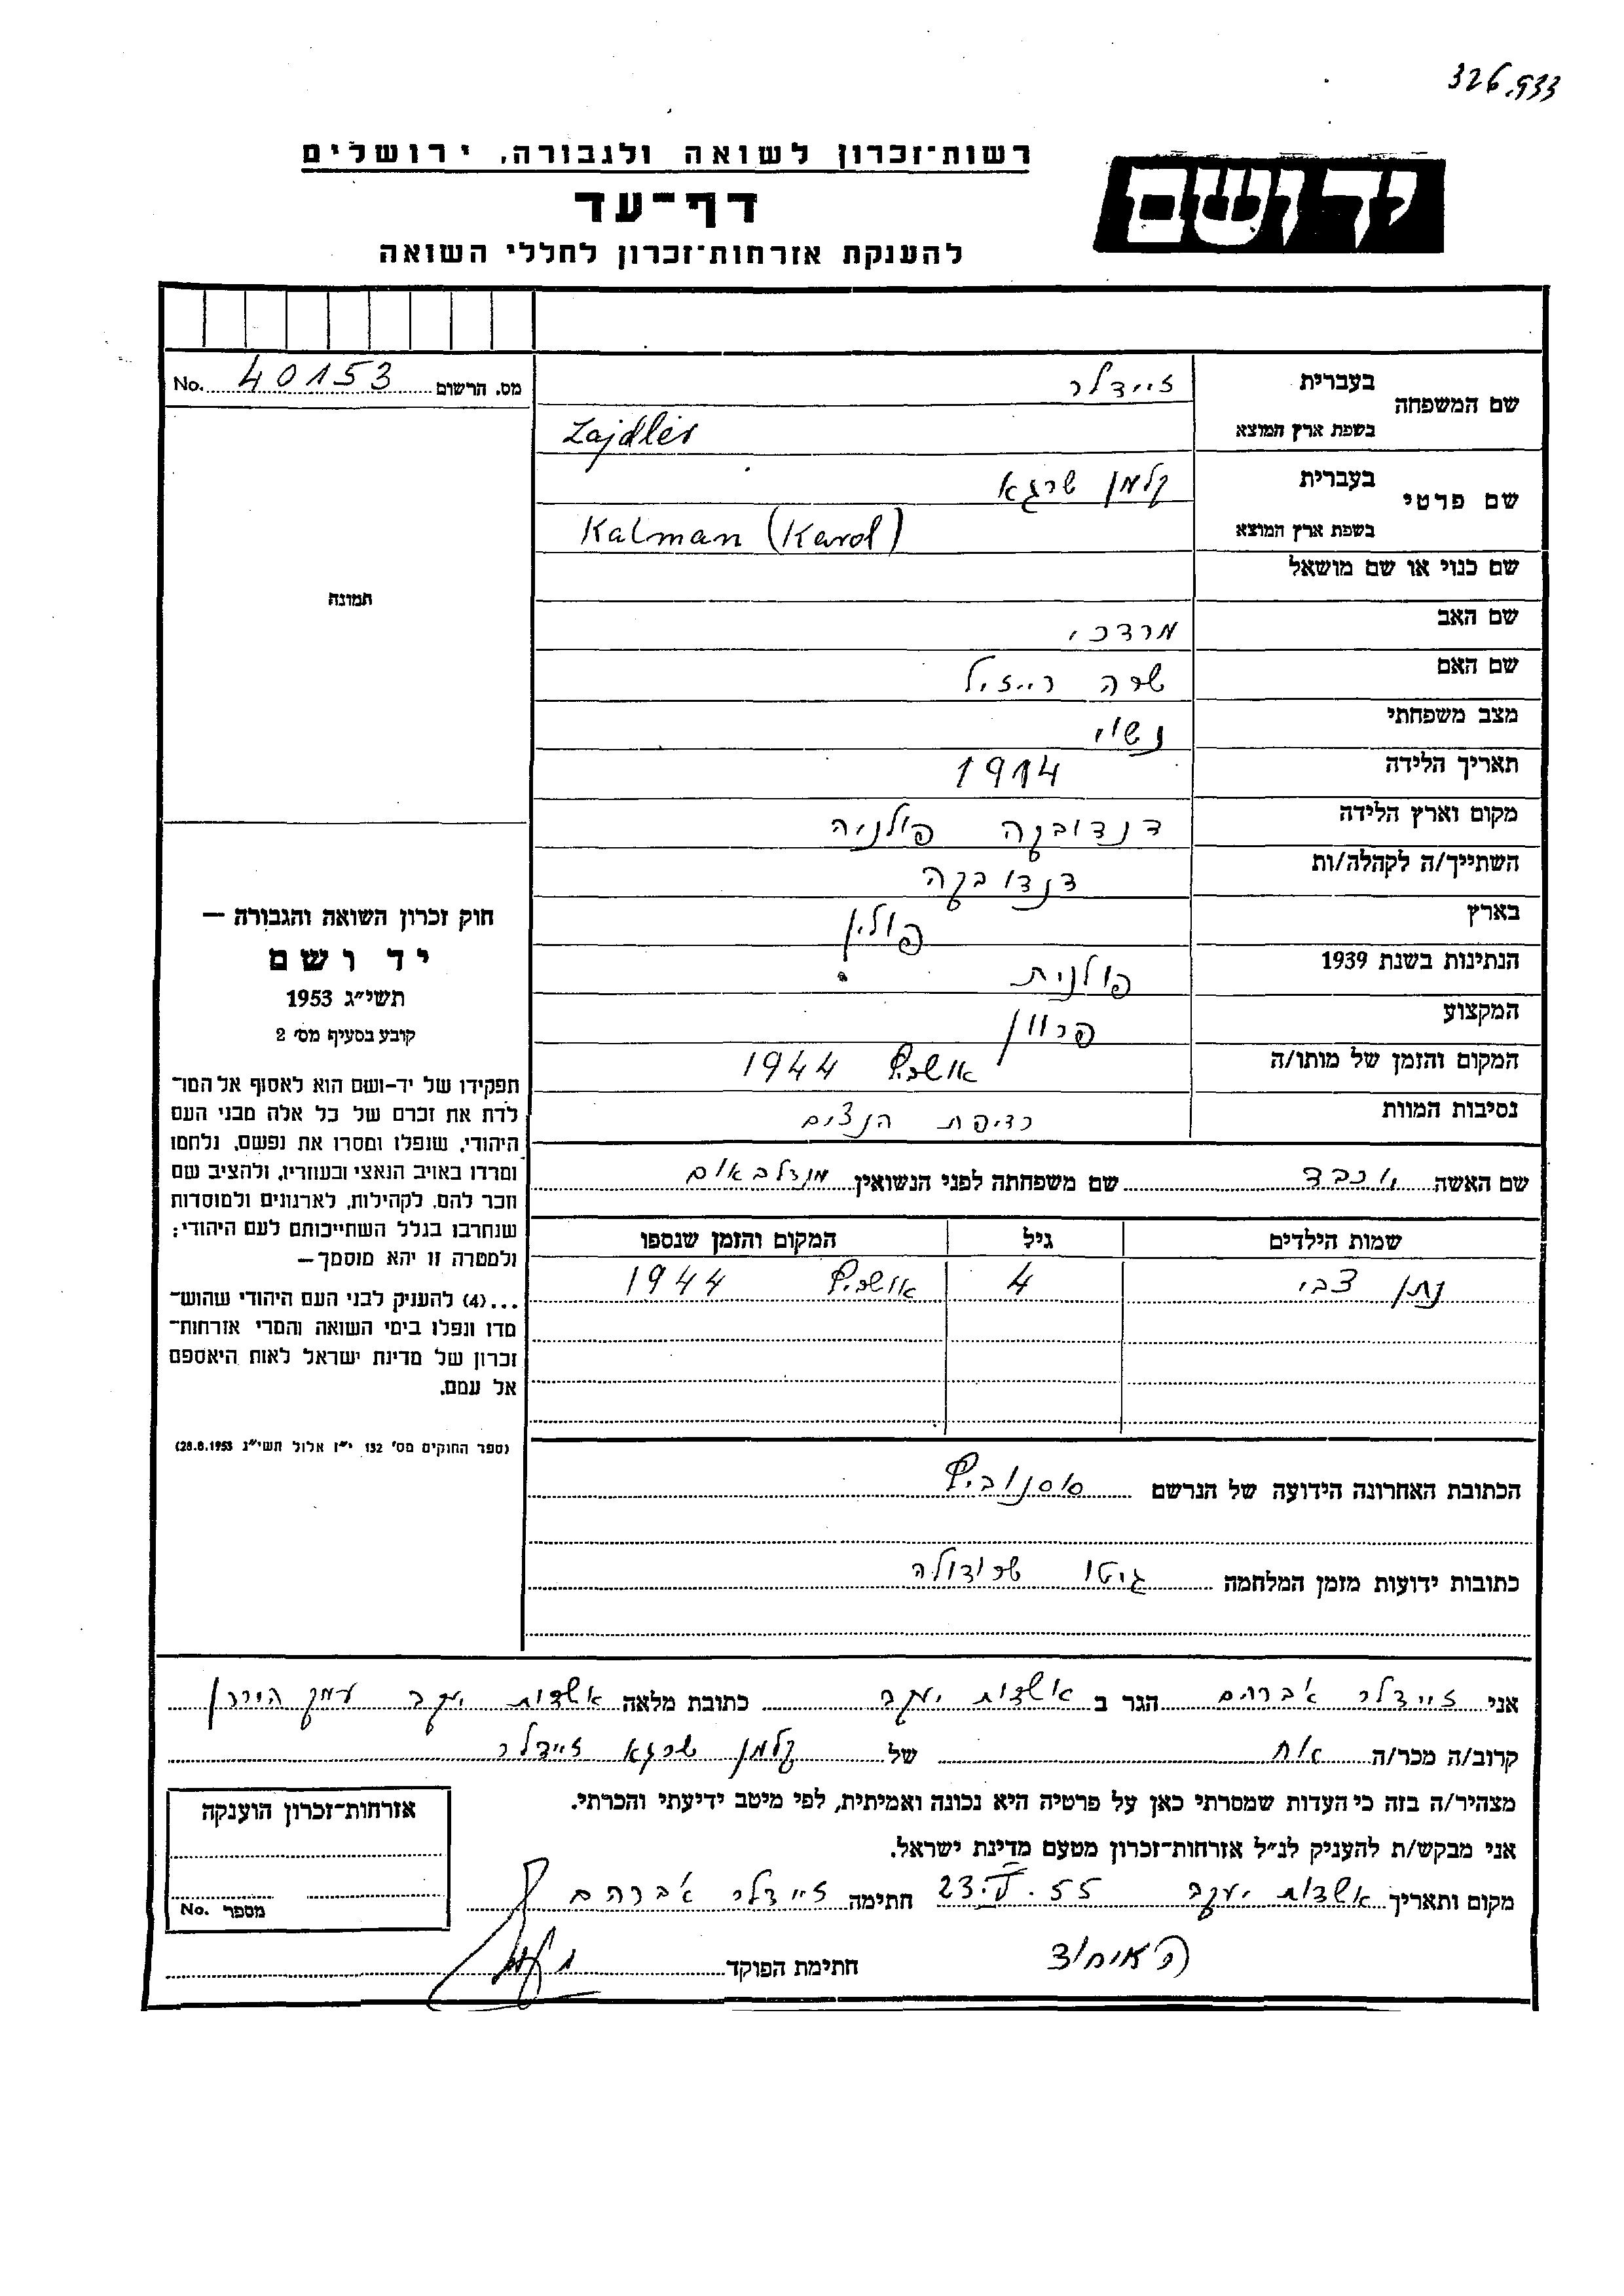 326.933
רשות־זכרון לשואה ולגבורה, ירושלים
יד ושם
דף־עד
להענקת אזרחות־זכרון לחללי השואה
מס. הרשום 40153 No.
שם המשפחה
בעברית זיידלר
בשפת ארץ המוצא Zajdler
שם פרטי
בעברית קלמן שרגא
בשפת ארץ המוצא Kalman (Karol)
שם כנוי או שם מושאל
שם האב מרדכי
שם האם שרה רייזיל
מצב משפחתי נשוי
תאריך הלידה 1914
מקום וארץ הלידה דנדובקה פולניה
השתייך/ה לקהלה/ות דנדובקה
בארץ פולין
הנתינות בשנת 1939 פולנית
המקצוע פרוון
המקום והזמן של מותו/ה אושביץ 1944
נסיבות המוות רדיפת הנצים
שם האשה יוכבד שם משפחתה לפני הנשואין מנדלבאום
שמות הילדים גיל המקום והזמן שנספו
נתן צבי 4 אושביץ 1944
הכתובת האחרונה הידועה של הנרשם סוסנוביץ
כתובות ידועות מזמן המלחמה גיטו שרודולה
תמונה
חוק זכרון השואה והגבורה —
יד ושם
תשי״ג 1953
קובע בסעיף מס׳ 2
תפקידו של יד-ושם הוא לאסוף אל המו־
לדת את זכרם של כל אלה מבני העם
היהודי, שנפלו ומסרו את נפשם, נלחמו
ומרדו באויב הנאצי ובעוזריו, ולהציב שם
וזכר להם, לקהילות, לארגונים ולמוסדות
שנחרבו בגלל השתייכותם לעם היהודי;
ולמטרה זו יהא מוסמך—
...(4) להעניק לבני העם היהודי שהוש־
מדו ונפלו בימי השואה והמרי אזרחות־
זכרון של מדינת ישראל לאות היאספם
אל עמם.
(ספר החוקים מס׳ 132 י״ז אלול תשי״ג 28.8.1953)
אני זיידלר אברהם הגר ב אשדות יעקב כתובת מלאה אשדות יעקב עמק הירדן
קרוב/ה מכר/ה אח של קלמן שרגא זיידלר
מצהיר/ה בזה כי העדות שמסרתי כאן על פרטיה היא נכונה ואמיתית, לפי מיטב ידיעתי והכרתי.
אני מבקש/ת להעניק לנ״ל אזרחות־זכרון מטעם מדינת ישראל.
מקום ותאריך אשדות יעקב 23.V.55 חתימה זיידלר אברהם
האיחוד
חתימת הפוקד
אזרחות־זכרון הוענקה
מספר No.